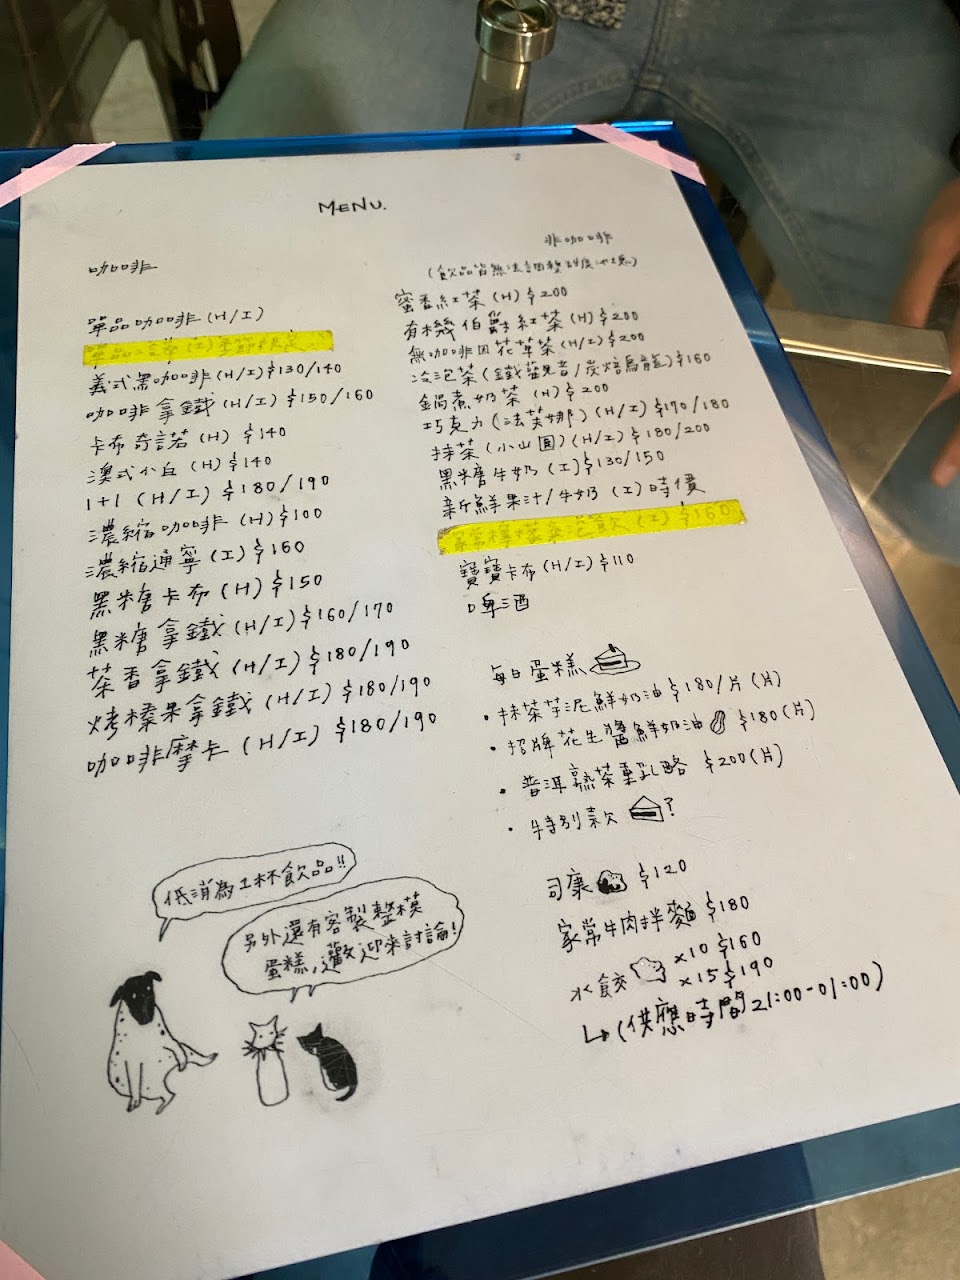 MENU.
咖啡
單品咖啡 (H/I)
單品冰 (I) 季節限定
義式黑咖啡 (H/I) $130/140
咖啡拿鐵 (H/I) $150/160
卡布奇諾 (H) $140
澳式小白 (H) $140
1+1 (H/I) $180/190
濃縮咖啡 (H) $100
濃縮通寧 (I) $160
黑糖卡布 (H) $150
黑糖拿鐵 (H/I) $160/170
茶香拿鐵 (H/I) $180/190
烤榛果拿鐵 (H/I) $180/190
咖啡摩卡 (H/I) $180/190
低消為1杯飲品!!
另外還有客製整模
蛋糕,歡迎來討論!
非咖啡
(飲品皆無法調整甜度冰塊)
蜜香紅茶 (H) $200
有機伯爵紅茶 (H) $200
無咖啡因花草茶 (H/I) $200
冷泡茶 (鐵觀音/炭焙烏龍) $160
鍋煮奶茶 (H) $200
巧克力 (法芙娜) (H/I) $170/180
抹茶 (小山園) (H/I) $180/200
黑糖牛奶 (I) $130/150
新鮮果汁/牛奶 (I) 時價
家常檸檬氣泡飲 (I) $160
寶寶卡布 (H/I) $110
啤酒
每日蛋糕
・抹茶芋泥鮮奶油 $180/片 (片)
・招牌花生醬鮮奶油 $180 (片)
・普洱熟茶重乳酪 $200 (片)
・特別款 ?
司康 $120
家常牛肉拌麵 $180
水餃 x10 $160
x15 $190
↳ (供應時間 21:00-01:00)